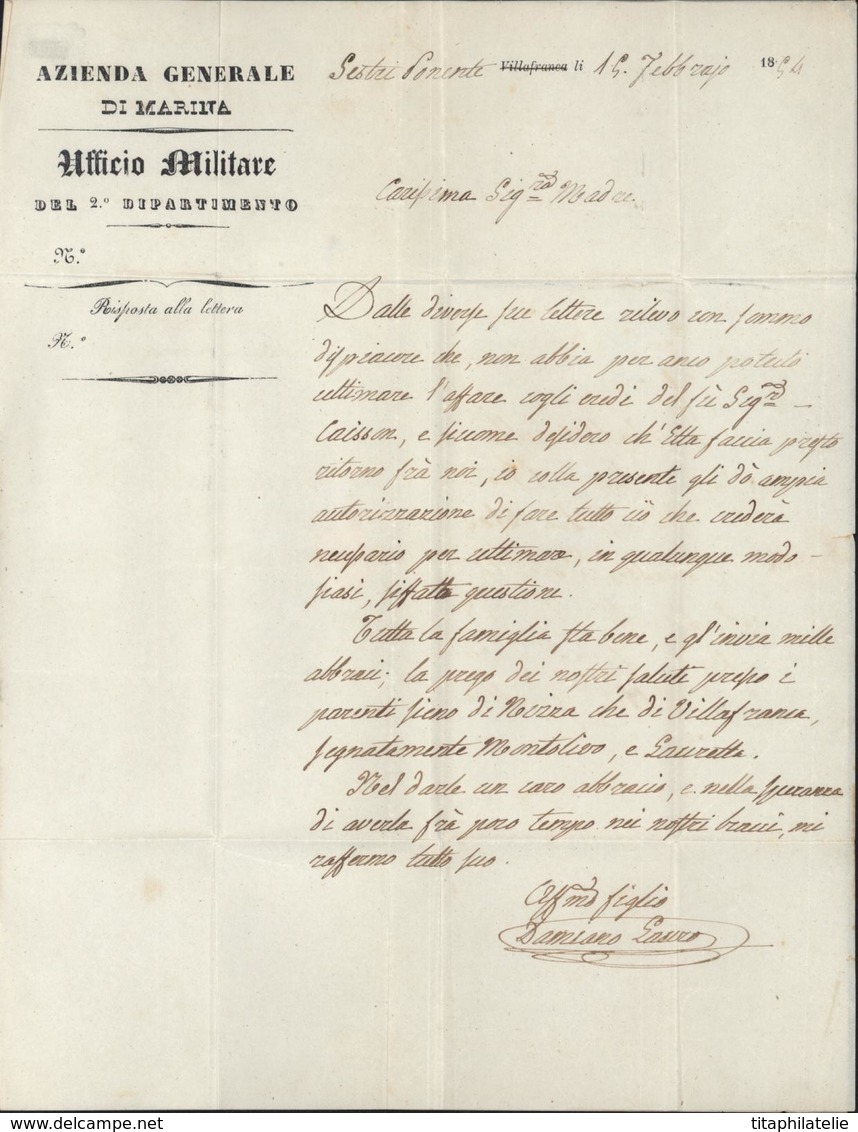 AZIENDA GENERALE
DI MARINA
Ufficio Militare
DEL 2.º DIPARTIMENTO
N.º
Risposta alla lettera
N.º
Sestri Ponente Villafranca li 15. Febbrajo 1854
Carissima Sig.ra Madre.
Dalle diverse sue lettere rilevo con sommo
dispiacere che, non abbia per anco potuto
ultimare l'affare cogli eredi del fù Sig.r
Caisson, e siccome desidero ch'Ella faccia presto
ritorno frà noi, io colla presente gli dò ampia
autorizzazione di fare tutto ciò che crederà
necessario per ultimare, in qualunque modo
siasi, siffatta questione.
Tutta la famiglia sta bene, e gl'invia mille
abbracci; la prego dei nostri saluti presso i
parenti sieno di Nizza che di Villafranca,
segnatamente Montolivo, e Lauretta.
Nel darle un caro abbraccio, e nella speranza
di averla frà poco tempo nei nostri bracci, mi
raffermo tutto suo.
Aff.mo figlio
Damiano
titaphilatelie